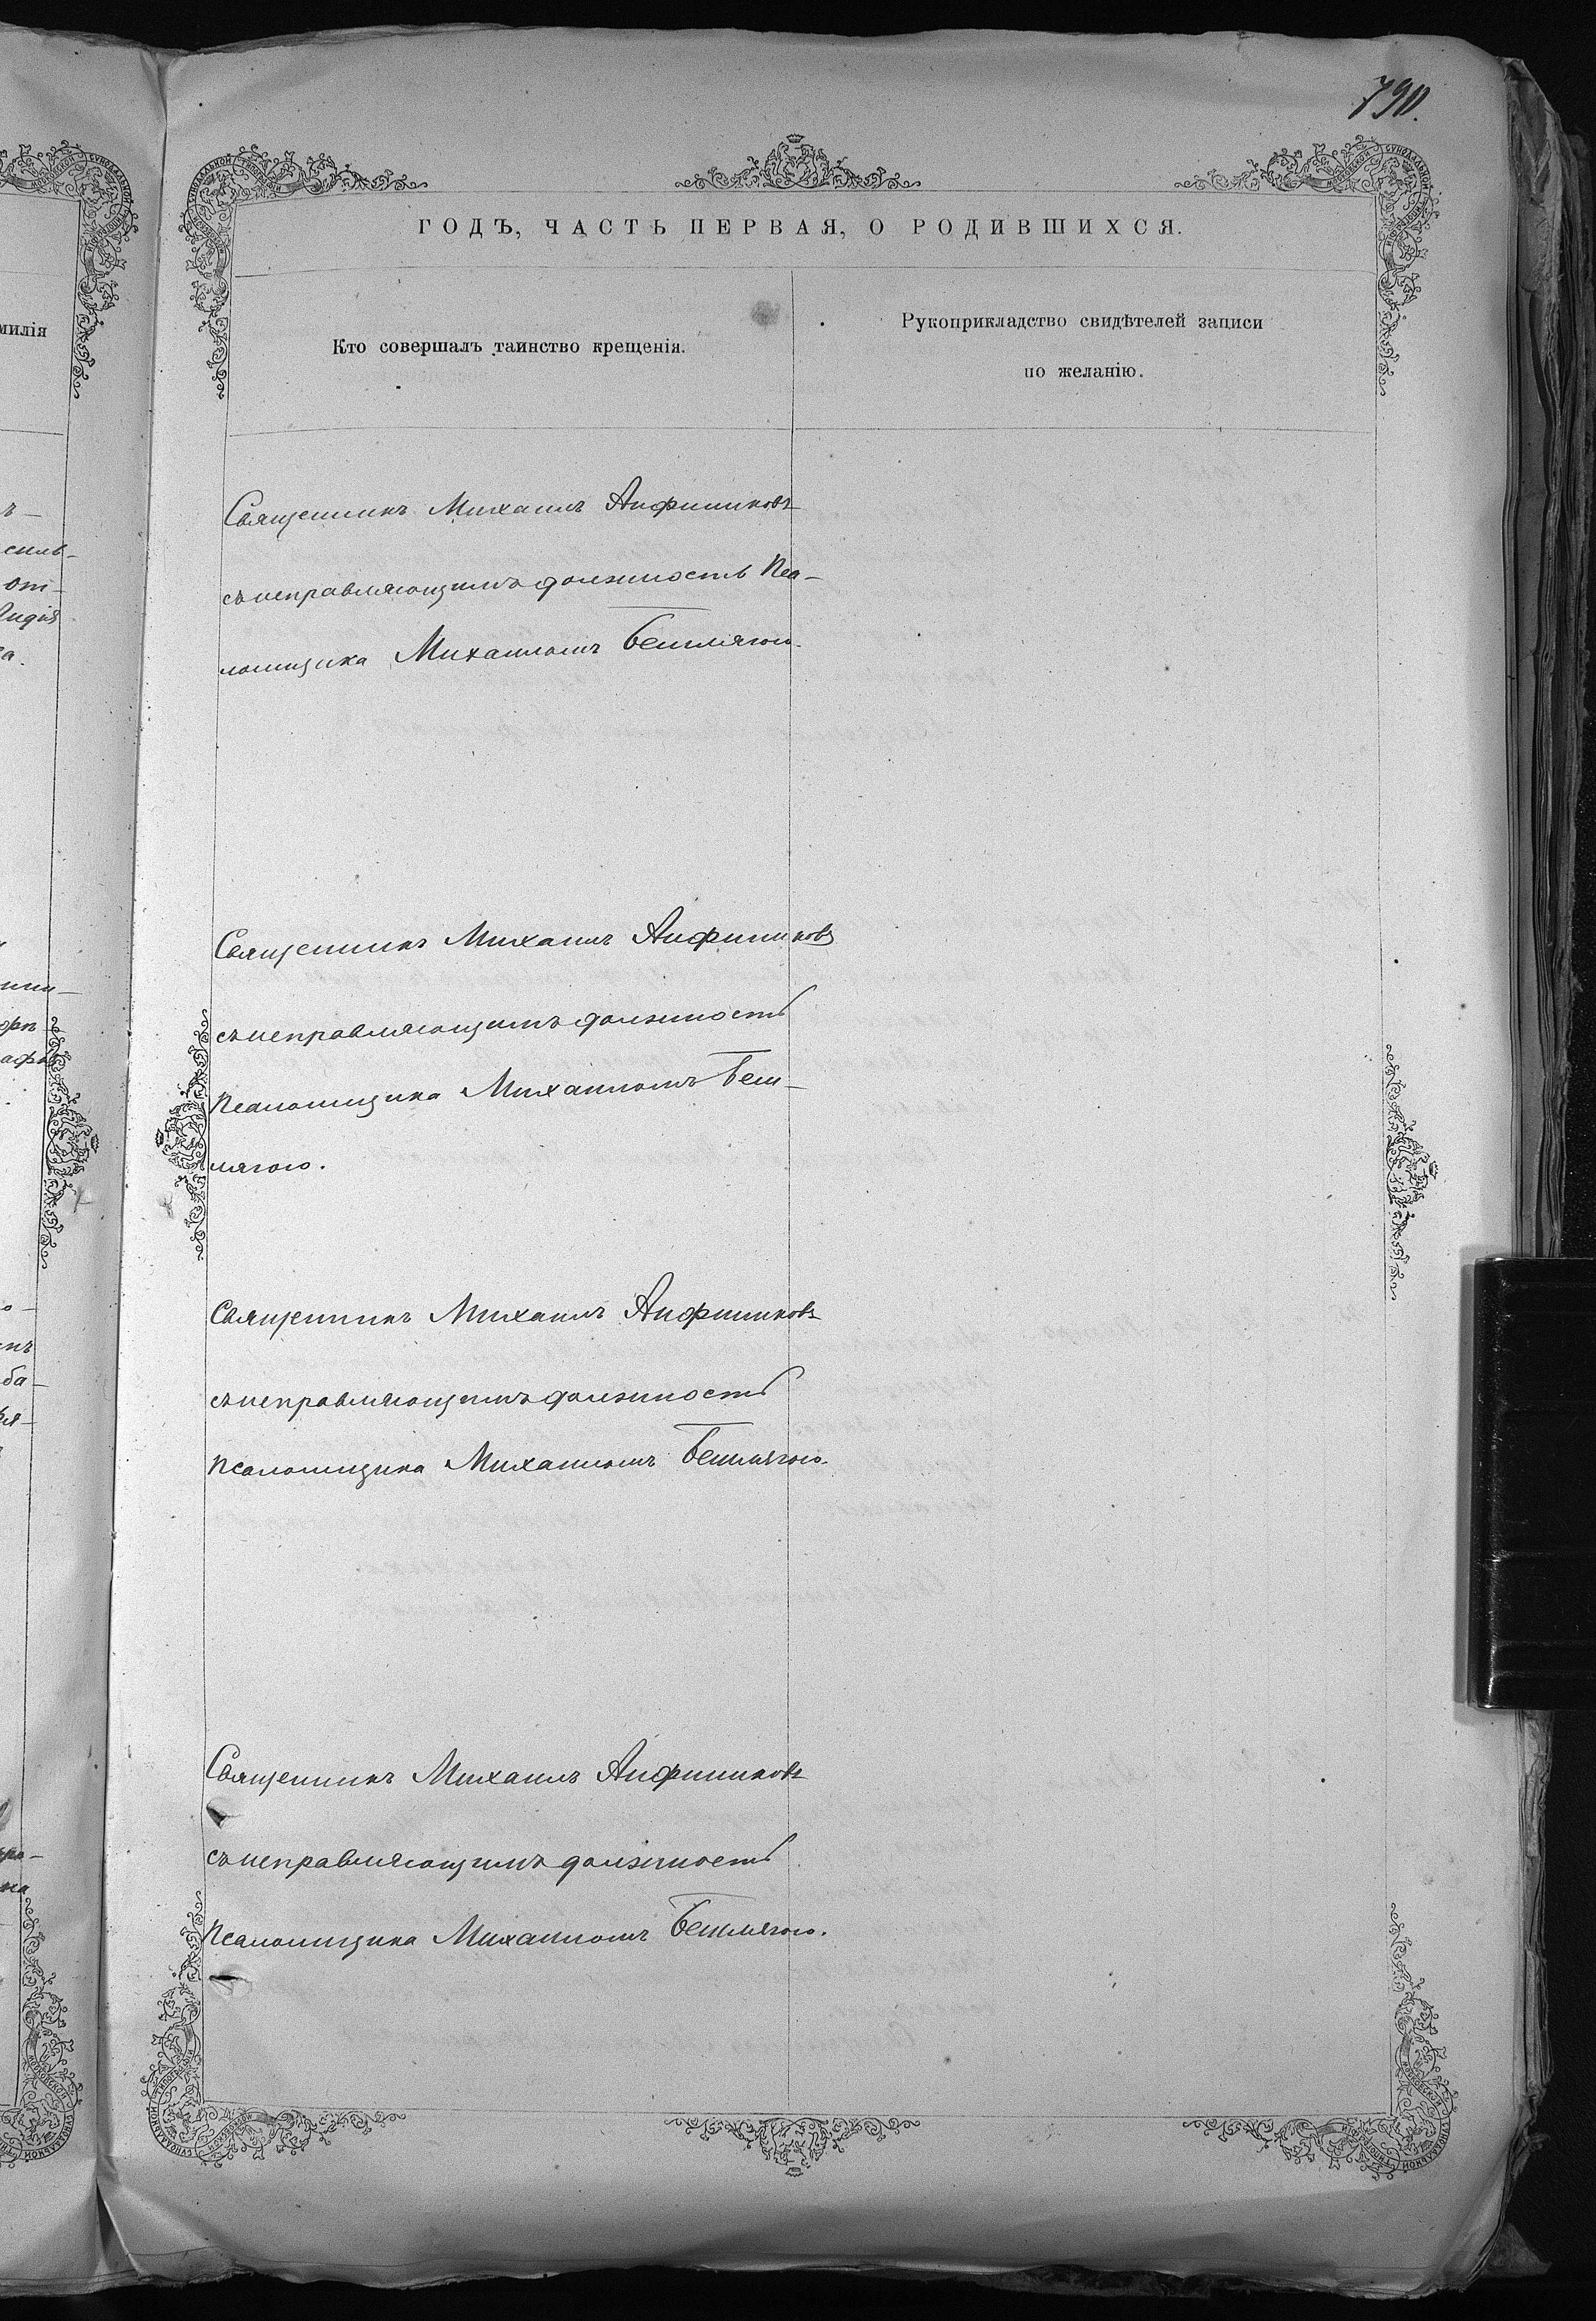 790.
ГОДЪ, ЧАСТЬ ПЕРВАЯ, О РОДИВШИХСЯ.
милія
Кто совершалъ таинство крещенія.
Рукоприкладство свидѣтелей записи
по желанію.
Священникъ Михаилъ Анфиниковъ
съ исправляющимъ должность Пса-
ломщика Михаиломъ
Священникъ Михаилъ Анфиниковъ
съ исправляющимъ должность
Псаломщика Михаиломъ
Священникъ Михаилъ Анфиниковъ
съ исправляющимъ должность
Псаломщика Михаиломъ
Священникъ Михаилъ Анфиниковъ
съ исправляющимъ должность
Псаломщика Михаиломъ